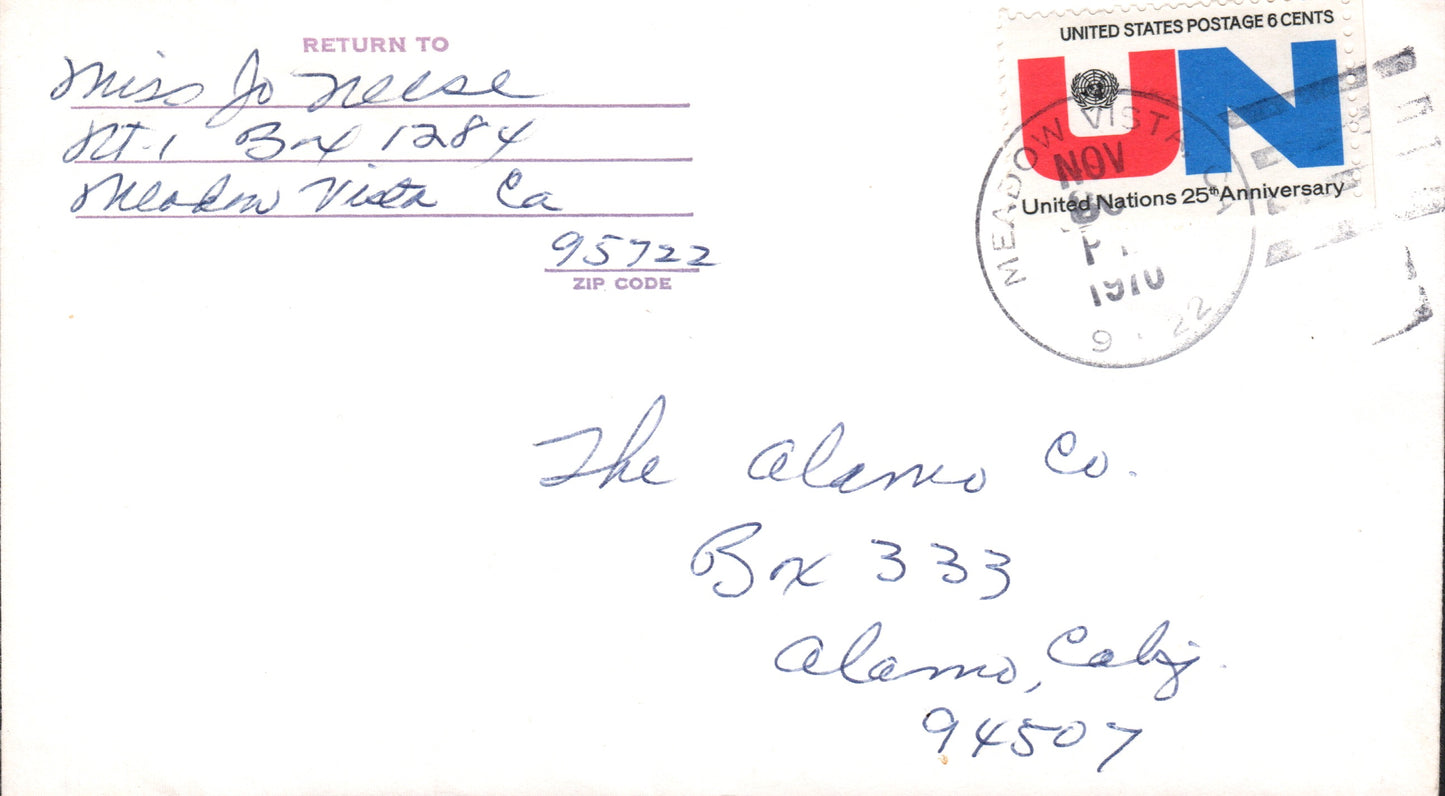 RETURN TO
Miss Jo Neese
Rt-1 Box 1284
Meadow Vista Ca
95722
ZIP CODE
UNITED STATES POSTAGE 6 CENTS
UN
United Nations 25th Anniversary
MEADOW VISTA
NOV
1970
The Alamo Co.
Box 333
Alamo, Calif.
94507